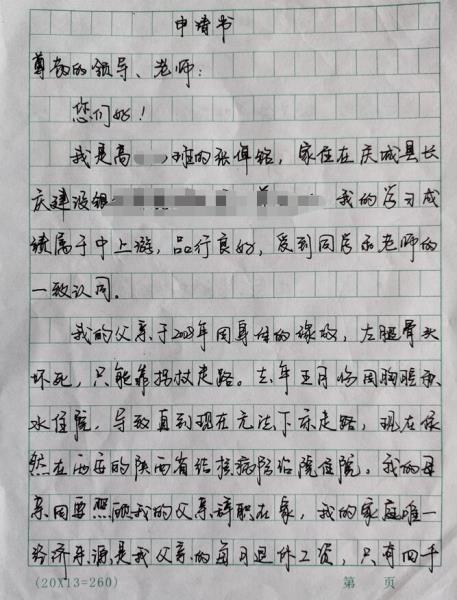 申请书
尊敬的领导、老师：
您们好！
我是高 班的张倬铭，家住在庆城县长
庆建设银 我的学习成
绩属于中上游，品行良好，受到同学和老师的
一致认同。
我的父亲于2008年因身体的缘故，左腿骨头
坏死，只能靠拐杖走路。去年五月份因胸腔积
水住院，导致直到现在无法下床走路，现在依
然在西安的陕西省结核病防治院住院。我的母
亲因要照顾我的父亲辞职在家，我的家庭唯一
经济来源是我父亲的每月退休工资，只有四千
(20X13=260)
第 页